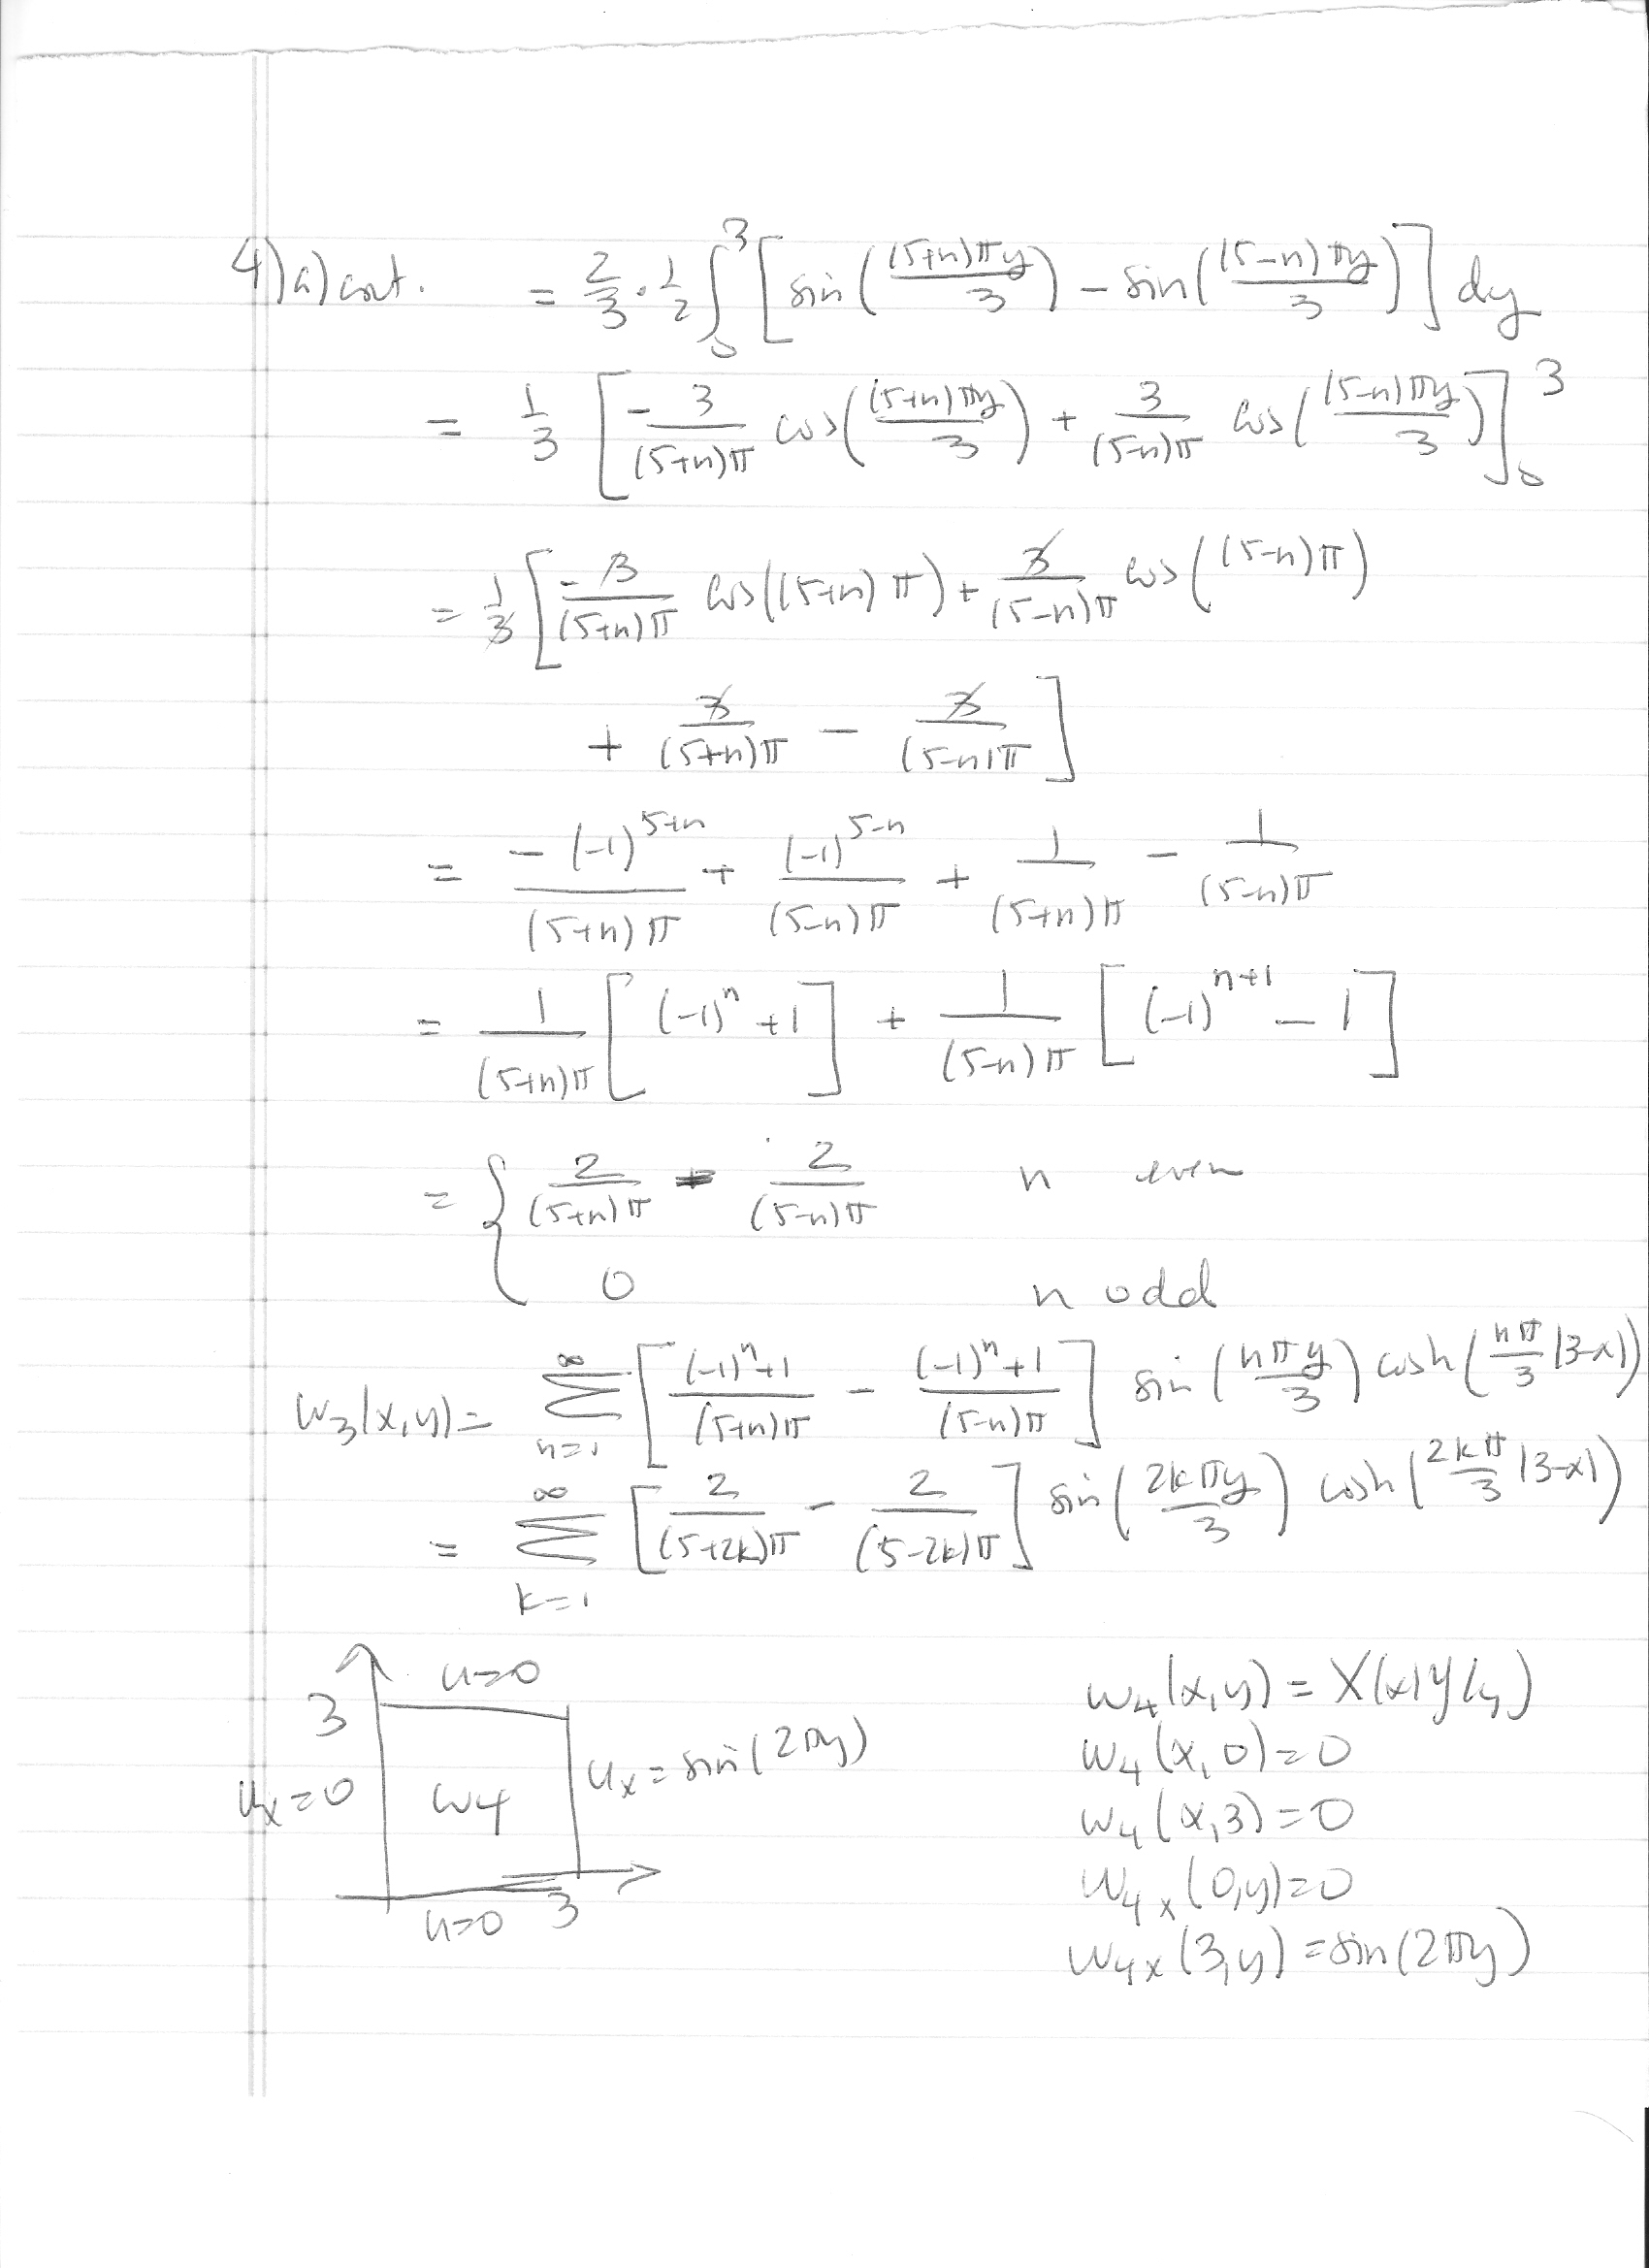 4) a) cont. = 2/3 · 1/2 ∫₀³ [ sin( (5+n)πy / 3 ) − sin( (5−n)πy / 3 ) ] dy
= 1/3 [ − 3/((5+n)π) cos( (5+n)πy / 3 ) + 3/((5−n)π) cos( (5−n)πy / 3 ) ]₀³
= 1/3 [ −3/((5+n)π) cos((5+n)π) + 3/((5−n)π) cos((5−n)π)
+ 3/((5+n)π) − 3/((5−n)π) ]
= −(−1)^(5+n) / ((5+n)π) + (−1)^(5−n) / ((5−n)π) + 1/((5+n)π) − 1/((5−n)π)
= 1/((5+n)π) [ (−1)^n + 1 ] + 1/((5−n)π) [ (−1)^(n+1) − 1 ]
= { 2/((5+n)π) − 2/((5−n)π) n even
0 n odd
w₃(x,y) = ∑_{n=1}^∞ [ ((−1)^n + 1)/((5+n)π) − ((−1)^n + 1)/((5−n)π) ] sin( nπy / 3 ) cosh( nπ/3 (3−x) )
= ∑_{k=1}^∞ [ 2/((5+2k)π) − 2/((5−2k)π) ] sin( 2kπy / 3 ) cosh( 2kπ/3 (3−x) )
u=0
3
u_x=0
w4
u_x = sin(2πy)
u=0
3
w₄(x,y) = X(x)Y(y)
w₄(x,0)=0
w₄(x,3)=0
w₄ₓ(0,y)=0
w₄ₓ(3,y)=sin(2πy)